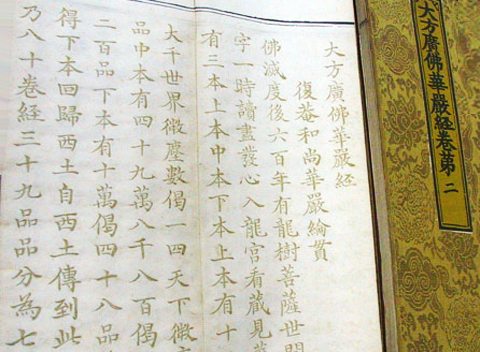 大方廣佛華嚴經卷第二
大方廣佛華嚴經
復菴和尚華嚴綸貫
佛滅度後六百年有龍樹菩薩世間
字一時讀盡發心入龍宮看藏見
有三本上本中本下本上本有十
大千世界微塵數偈一四天下微
品中本有四十九萬八千八百偈
二百品下本有十萬偈四十八品
得下本回歸西土自西土傳到此
乃八十卷經三十九品品分為七